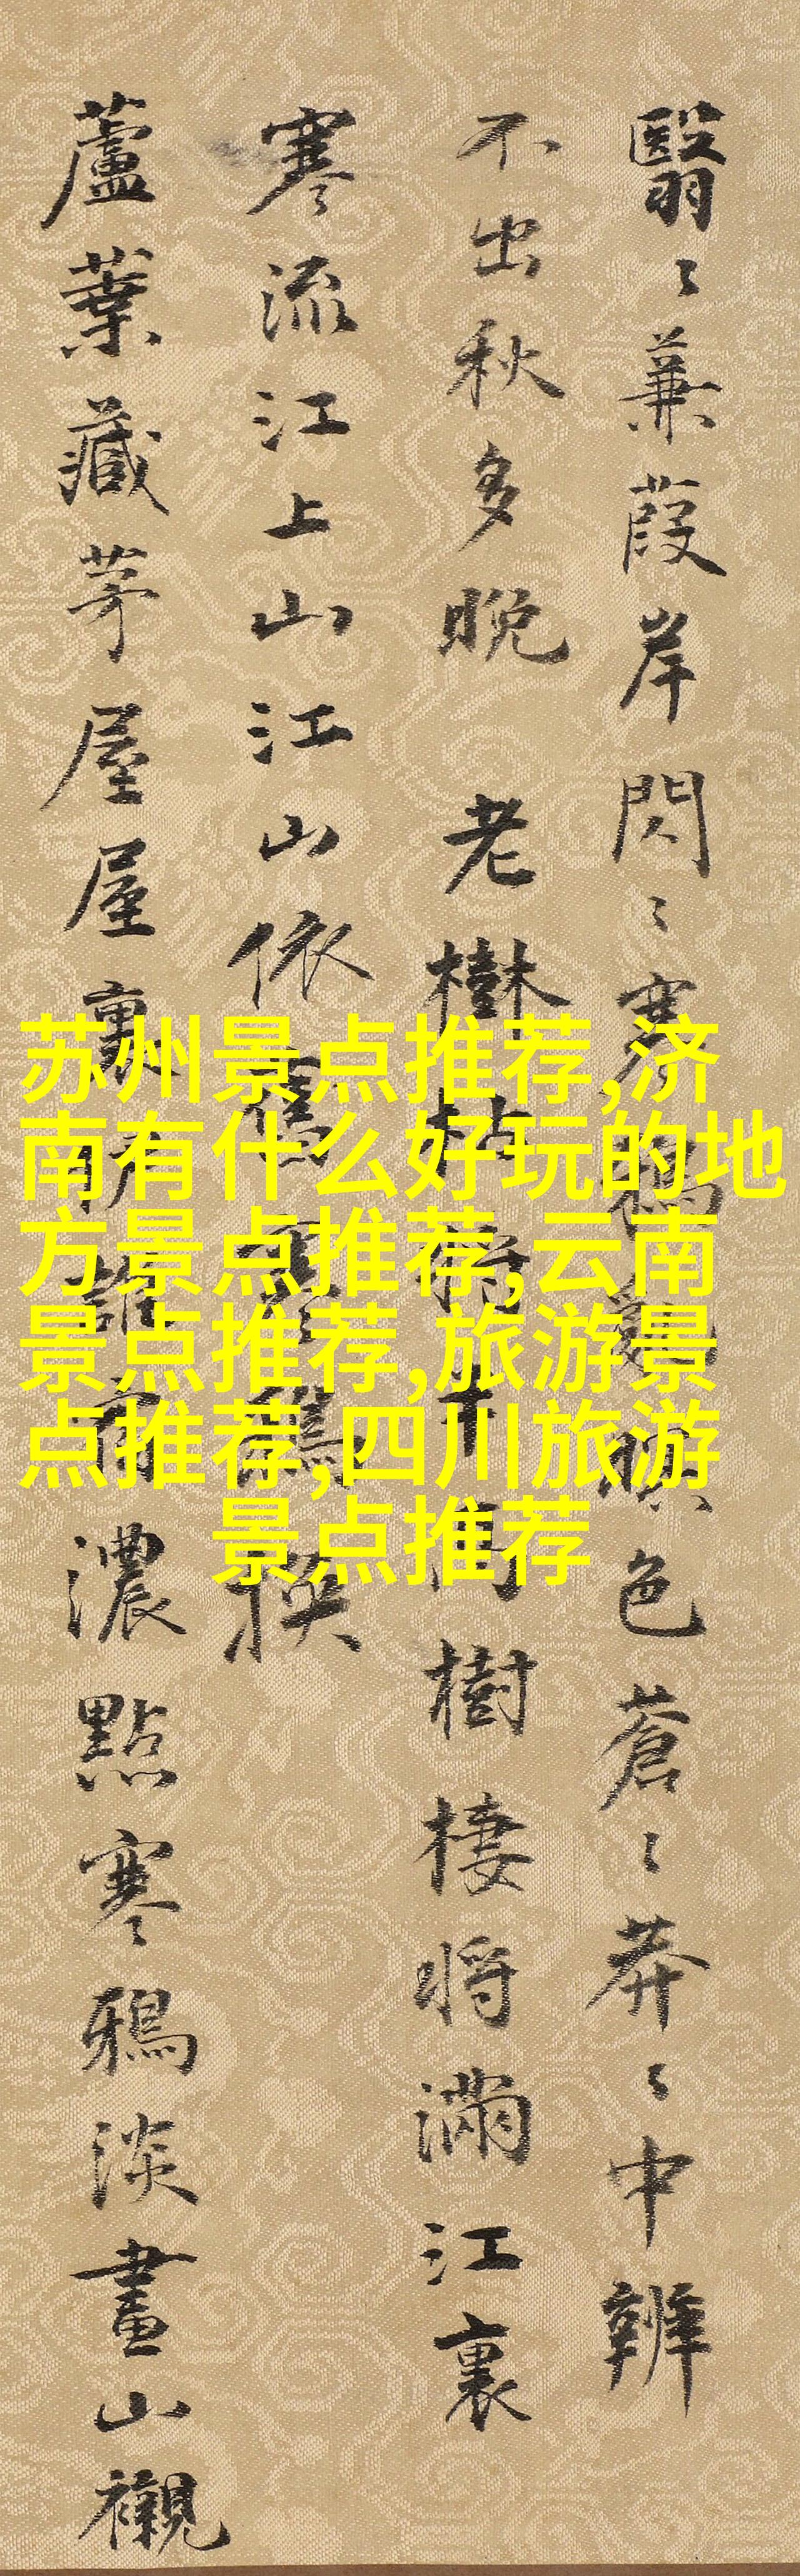 翳〻蒹葭岸閃〻寒鴉
色蒼〻莽〻中辨
不出秋多晚 老樹枯將
樹棲將滿江裏
寒流江上山江山依舊
撰
蘆葉藏茅屋屋裏
濃點寒鴉淡畫山襯
苏州景点推荐,济
南有什么好玩的地
方景点推荐,云南
景点推荐,旅游景
点推荐,四川旅游
景点推荐